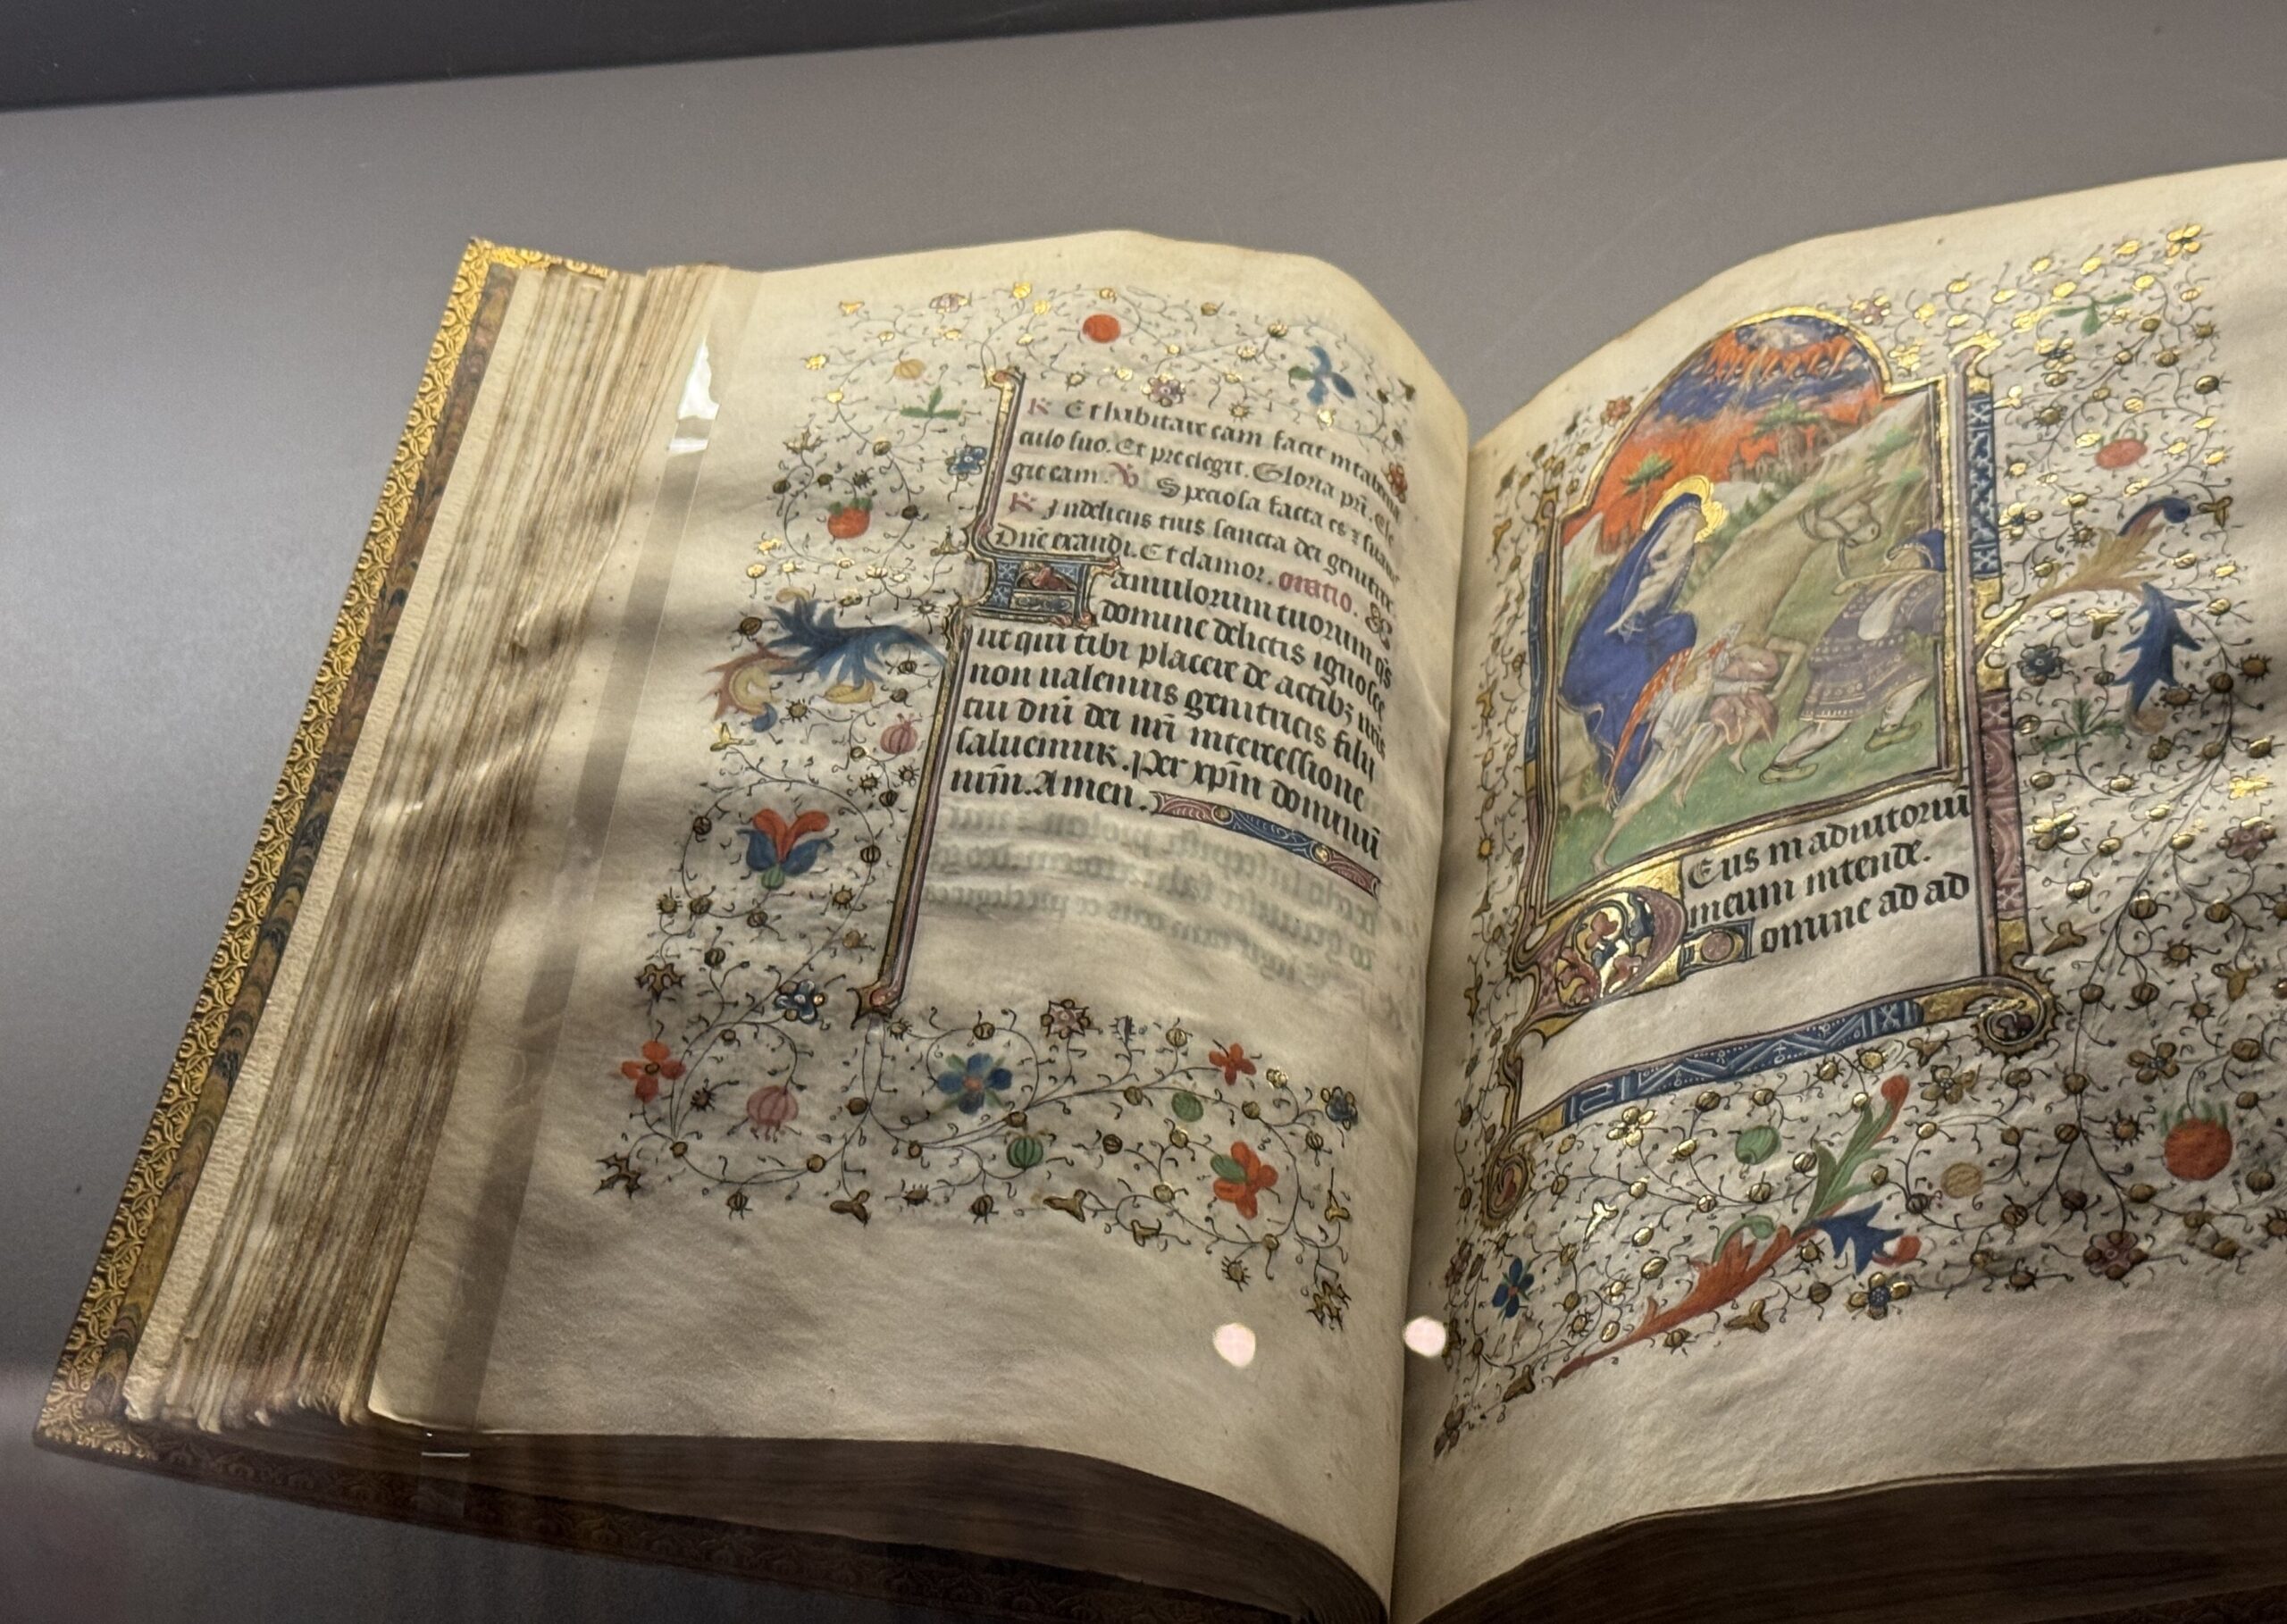 R Et habitare eam facit in taberna
culo suo. Et preelegit. Gloria pri. Ele
git eam. V Speciosa facta es z suauis
R In deliciis tuis sancta dei genitrix
Dne exaudi. Et clamor. oratio.
Famulorum tuorum qs
domine delictis ignosce
ut qui tibi placere de actibz nris
non ualemus genitricis filii
tui dni dei nri intercessione
saluemur. Per xpm dominum
nrm. Amen.
Deus in adiutoriu
meum intende.
Domine ad ad